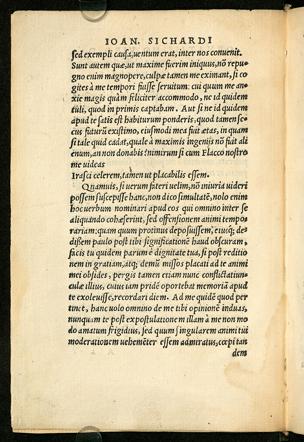 IOAN. SICHARDI
sed exempli causa, uentum erat, inter nos conuenit.
Sunt autem quæ, ut maxime fuerim iniquus, nō repu-
gno enim magnopere, culpæ tamen me eximant, si co
gites à me tempori fuisse seruitum: cui quum me an-
xie magis quàm feliciter accommodo, ne id quidem
tuli, quod in primis captabam. Aut si ne id quidem
apud te satis est habiturum ponderis, quod tamen se-
cius futurū existimo, eiusmodi mea fuit ætas, in quam
si tale quid cadat, quale à maximis ingenijs nō fuit ali
enum, an non donabis? nimirum si cum Flacco nostro
me uideas
Irasci celerem, tamen ut placabilis essem.
Quamuis, si uerum fateri uelim, nō iniuria uideri
possem suscepisse hanc, non dico simultatē, nolo enim
hoc uerbum nominari apud eos qui omnino inter se
aliquando cohæserint, sed offensionem animi tempo-
rariam: quam quum protinus deposuissem, eiusq; de-
dissem paulo post tibi significationē haud obscuram,
facis tu quidem parum è dignitate tua, si post reditio
nem in gratiam, atq; demū missos placati ad te animi
mei obsides, pergis tamen etiam nunc conflictatiun-
culæ illius, cuius iam pridē oportebat memoriā apud
te exoleuisse, recordari diem. Ad me quidē quod per
tinet, hanc uolo omnino de me tibi opinionē induas,
nunquam te post expostulatione m illam à me non mo
do amatum frigidius, sed quum singularem animi tui
moderationem uehemēter essem admiratus, cœpi tan
dem